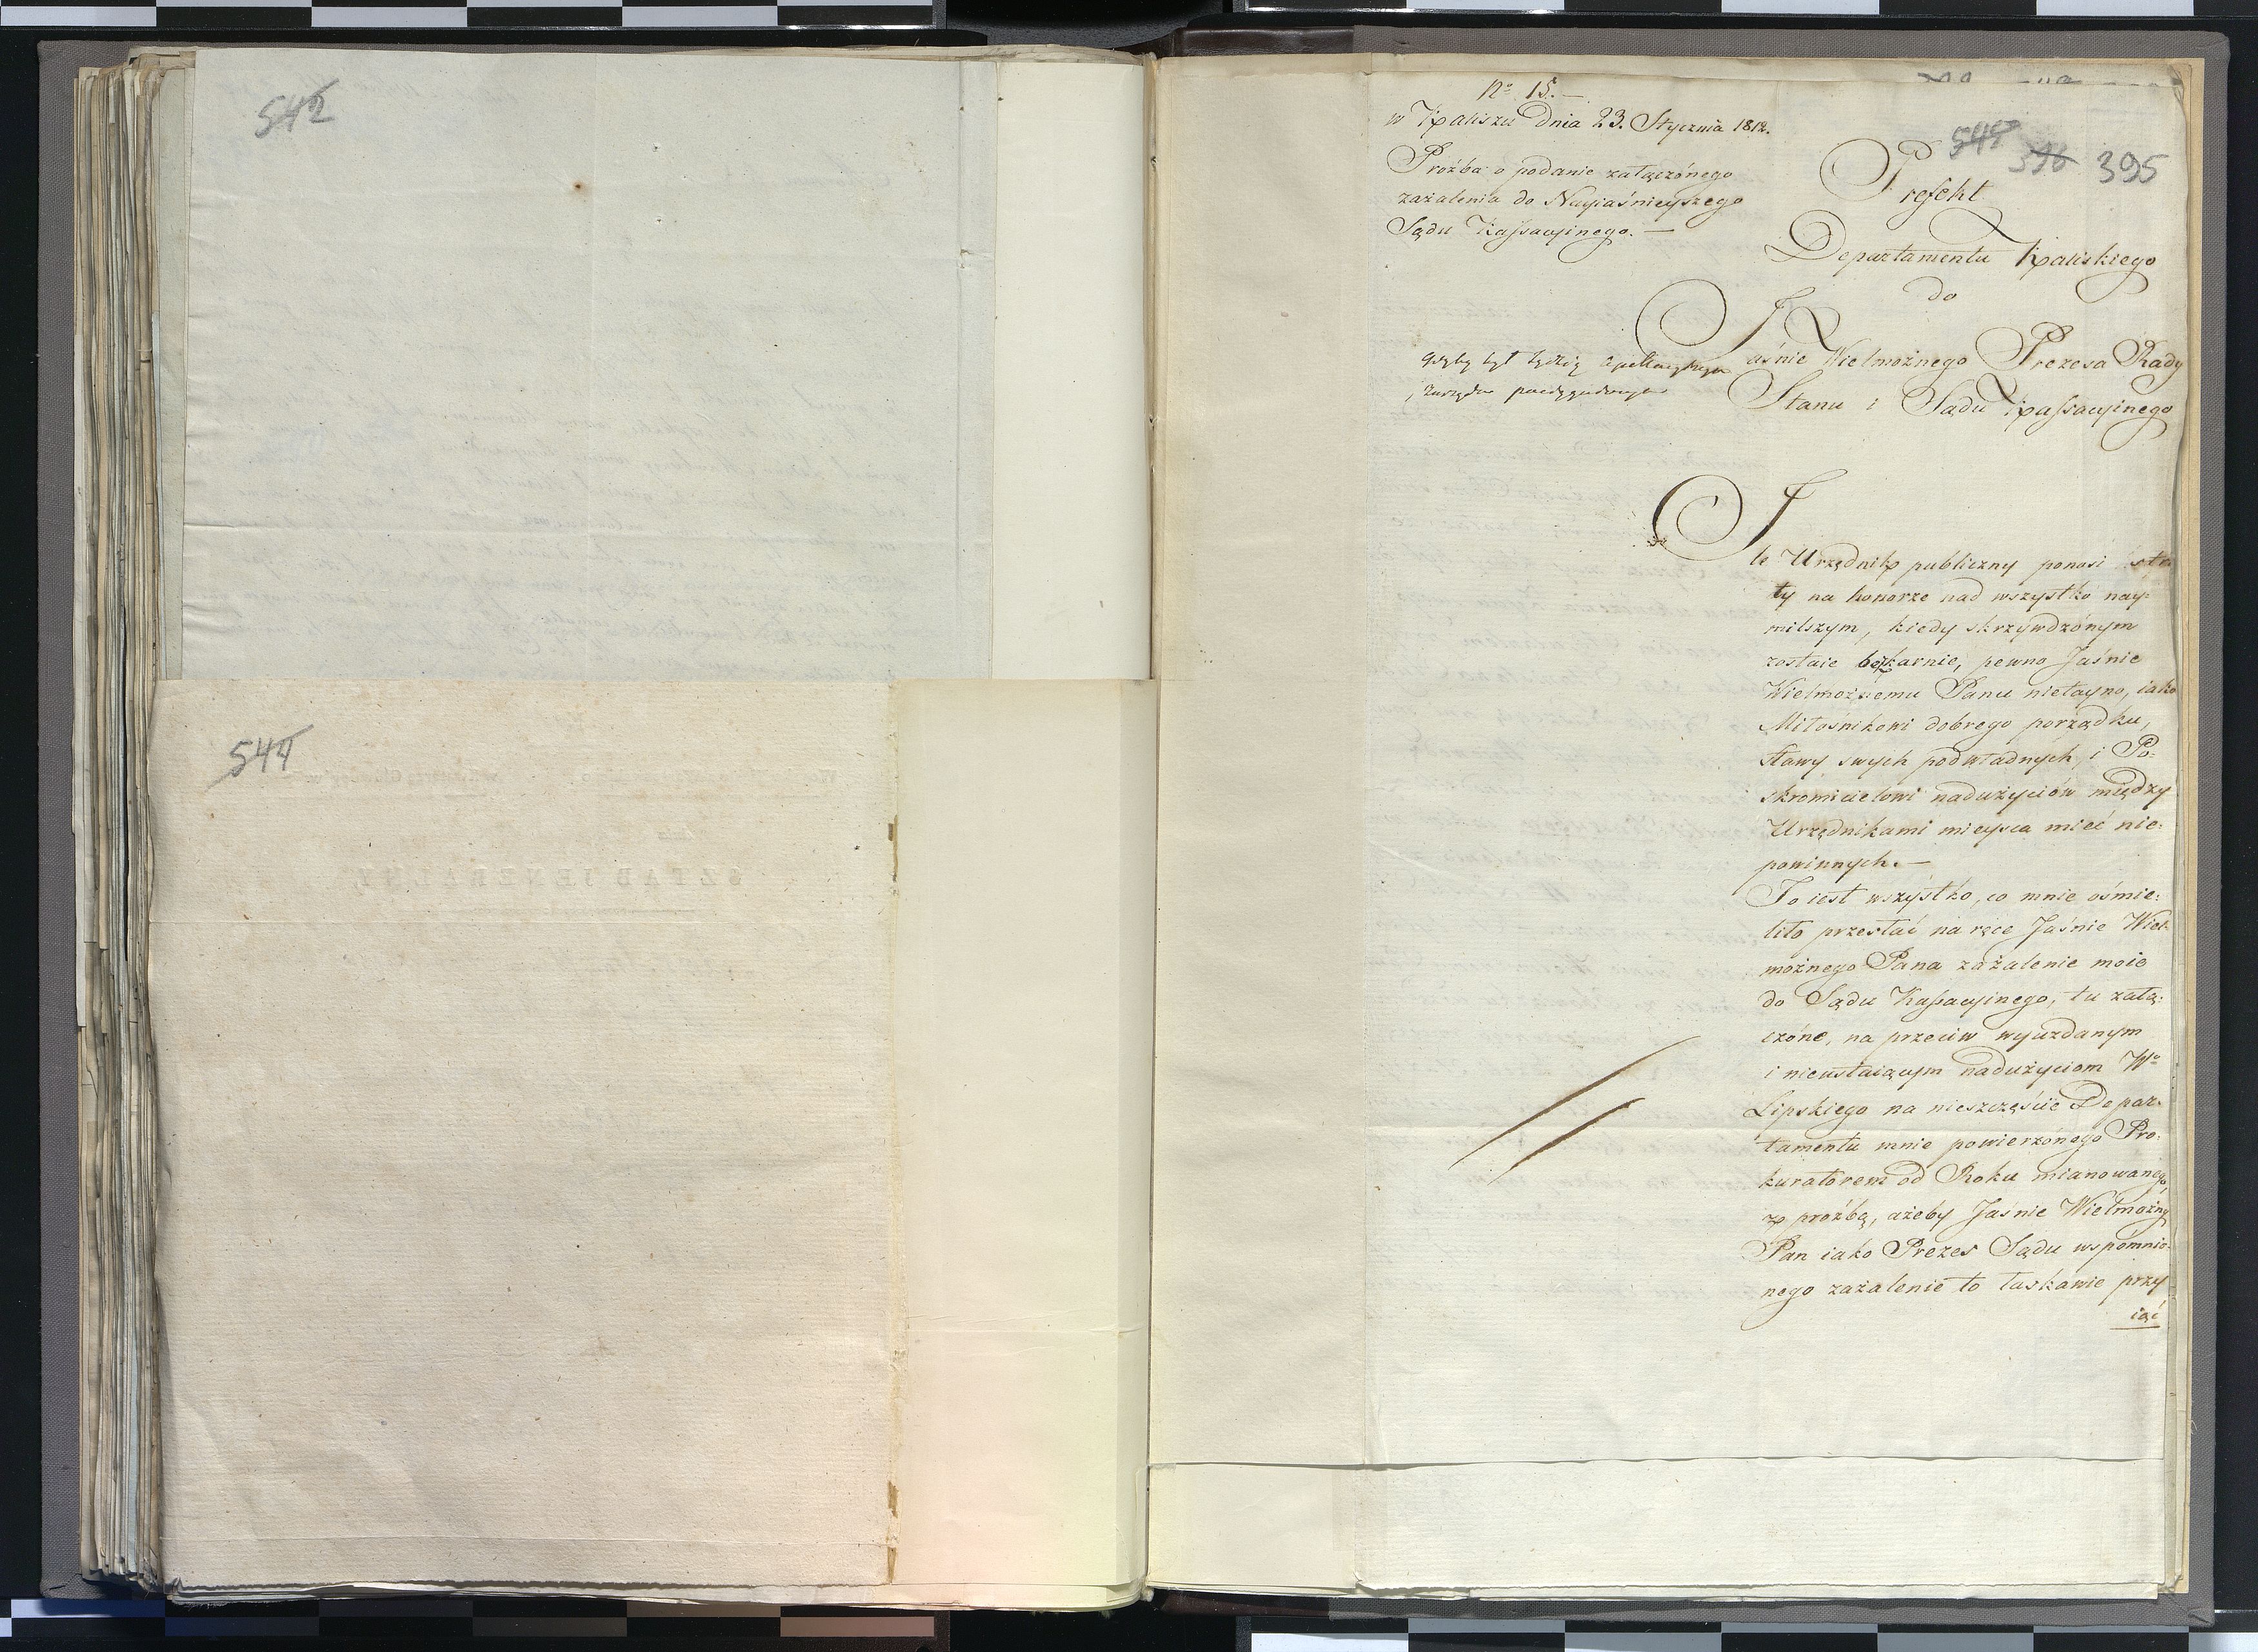 542
544
No 15.—
w Kaliszu Dnia 23. Stycznia 1812.
Proźba o podanie załączónego
zażalenia do Nayiaśnieyszego
Sądu Kassacyinego.—
545 396 395
Prefekt
Departamentu Kaliskiego
do
Jaśnie Wielmożnego Prezesa Rady
Stanu i Sądu Kassacyinego
Ile Urzędnik publiczny ponosi stra
ty na honorze nad wszystko nay-
milszym, kiedy skrzywdzónym
zostaie bezkarnie, pewno Jaśnie
Wielmożnemu Panu nietayno, iako
Miłosnikowi dobrego porządku,
Sławy swych podwładnych, i Po-
skromicielowi nadużyciów między
Urzędnikami mieysca mieć nie-
powinnych.—
To iest wszystko, co mnie ośmie-
liło przesłać na ręce Jaśnie Wiel-
możnego Pana zażalenie moie
do Sądu Kassacyinego, tu załą-
czóne, na przeciw wyuzdanym
i nieustaiącym nadużyciom Wo
Lipskiego na nieszczęście Depar-
tamentu mnie powierzónego Pro-
kuratorem od Roku mianowanego,
z proźbą, ażeby Jaśnie Wielmożny
Pan iako Prezes Sądu wspomnio-
nego zażalenie to łaskawie przy
iąć